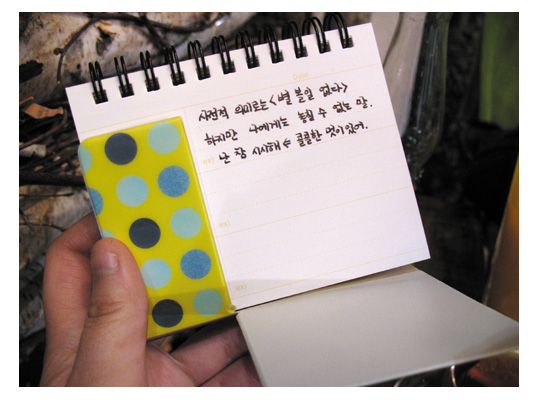 Date.
사전적 의미로는 <별 볼일 없다>
하지만 나에게는 통할 수 없는 말.
난 참 시시해 ← 쿨쿨한 멋이있어.